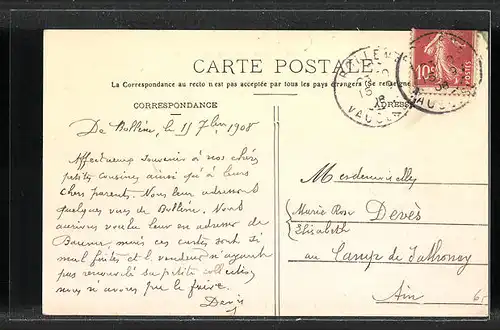 CARTE POSTALE
La Correspondance au recto n'est pas acceptée par tous les pays étrangers (Se renseigner
CORRESPONDANCE
ADRESSE
10c
POSTES
VAUCLUSE
De Bollène, le 11 7bre 1908
Affectueux souvenir à nos chères
petites cousines ainsi qu'à leurs
chers parents. Nous leur adressons
quelques vues de Bollène. Nous
aurions voulu leur en adresser de
mais ces cartes sont si
mal faites et le vendeur n'ayant
pas renouvelé sa petite collection
nous n'avons pas pu le faire.
Mesdemoiselles
Marie Rose Devès
Elisabeth
au Camp de
Ain